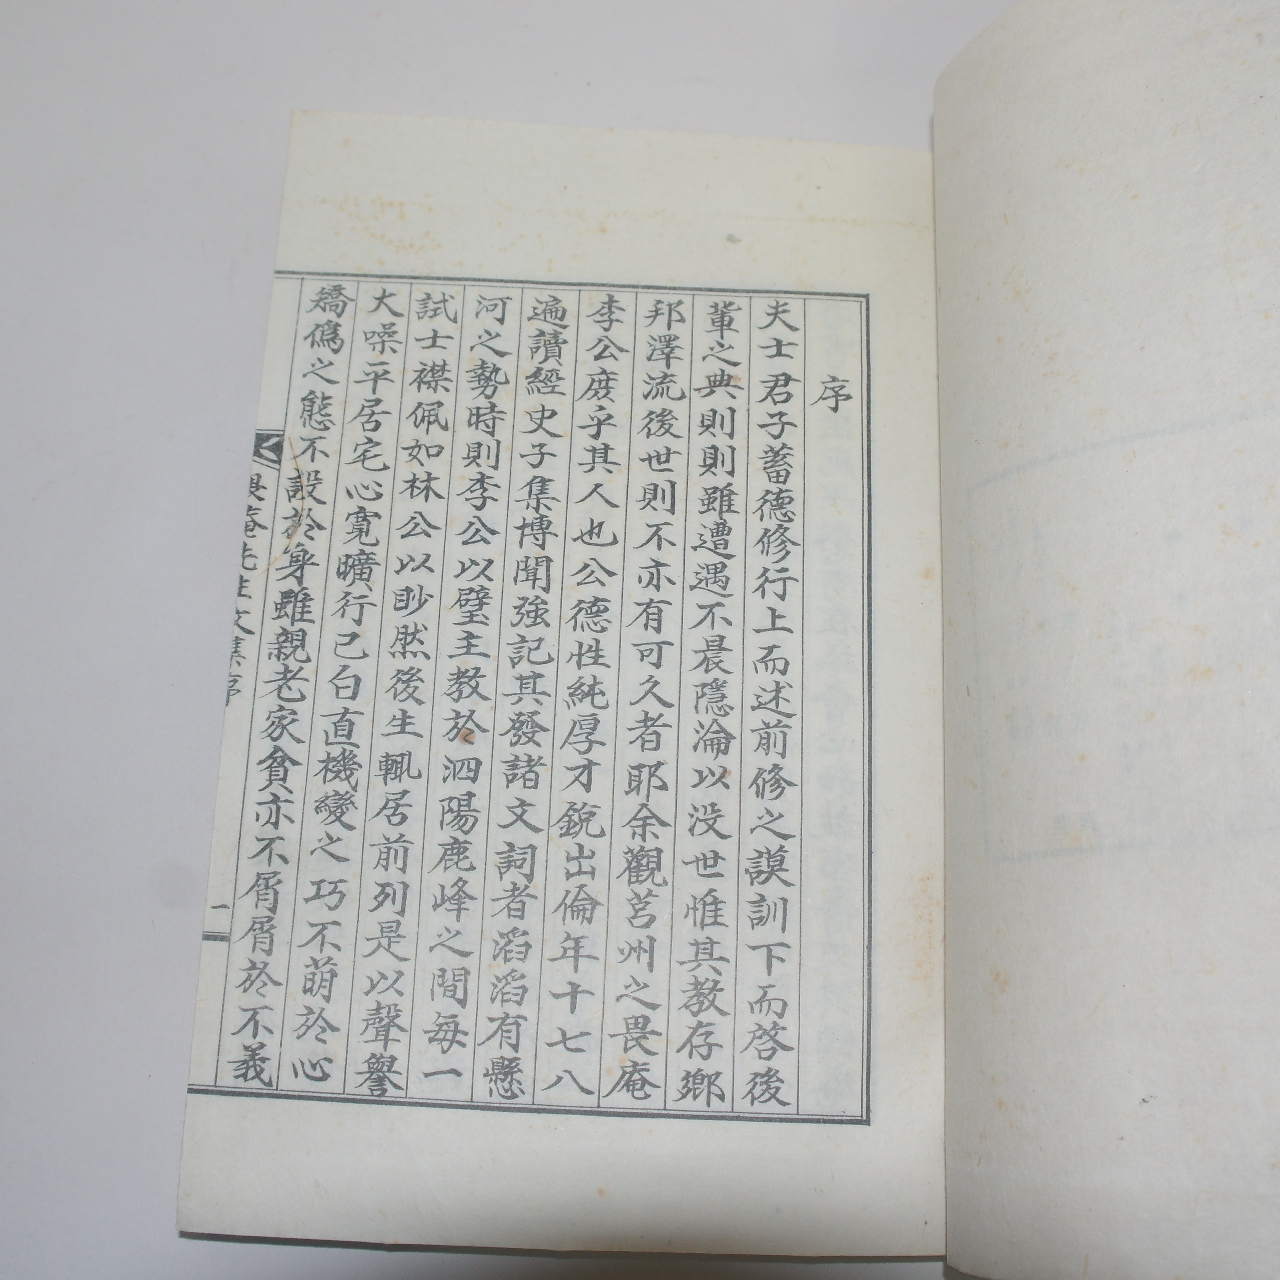 序
夫士君子蓄德修行上而述前修之謨訓下而啓後
輩之典則則雖遭遇不晨隱淪以没世惟其教存鄉
邦澤流後世則不亦有可久者耶余觀莒州之畏庵
李公庻乎其人也公德性純厚才銳出倫年十七八
遍讀經史子集博聞強記其發諸文詞者滔滔有懸
河之勢時則李公以璧主教於泗陽鹿峰之間每一
試士襟佩如林公以眇然後生輒居前列是以聲譽
大噪平居宅心寬曠行己白直機變之巧不萌於心
矯僞之態不設於身雖親老家貧亦不屑屑於不義
畏庵先生文集序
一